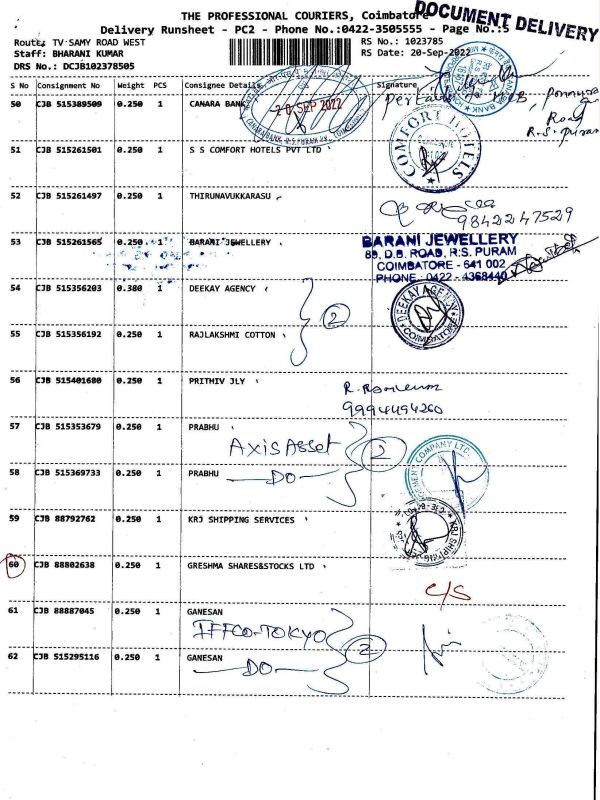 THE PROFESSIONAL COURIERS, Coimbatore
DOCUMENT DELIVERY
Delivery Runsheet - PC2 - Phone No.:0422-3505555 - Page No.:5
Route: TV SAMY ROAD WEST RS No.: 1023785
Staff: BHARANI KUMAR RS Date: 20-Sep-2022
DRS No.: DCJB102378505
S No Consignment No Weight PCS Consignee Details Signature
50 CJB 515389509 0.250 1 CANARA BANK
20 SEP 2022
Road
R.S. Puram
51 CJB 515261501 0.250 1 S S COMFORT HOTELS PVT LTD
COMFORT HOTELS
52 CJB 515261497 0.250 1 THIRUNAVUKKARASU
9842247529
53 CJB 515261565 0.250 1 BARANI JEWELLERY
BARANI JEWELLERY
89, D.B. ROAD, R.S. PURAM
COIMBATORE - 641 002
PHONE : 0422 - 4368440
54 CJB 515356203 0.380 1 DEEKAY AGENCY
2
DEEKAY AGENCY
COIMBATORE
55 CJB 515356192 0.250 1 RAJLAKSHMI COTTON
56 CJB 515401680 0.250 1 PRITHIV JLY
9994494260
57 CJB 515353679 0.250 1 PRABHU
Axis Asset
2
COMPANY LTD.
58 CJB 515369733 0.250 1 PRABHU
DO
59 CJB 88792762 0.250 1 KRJ SHIPPING SERVICES
60 CJB 88802638 0.250 1 GRESHMA SHARES&STOCKS LTD
C/S
61 CJB 88887045 0.250 1 GANESAN
IFFCO-TOKYO
2
62 CJB 515295116 0.250 1 GANESAN
DO